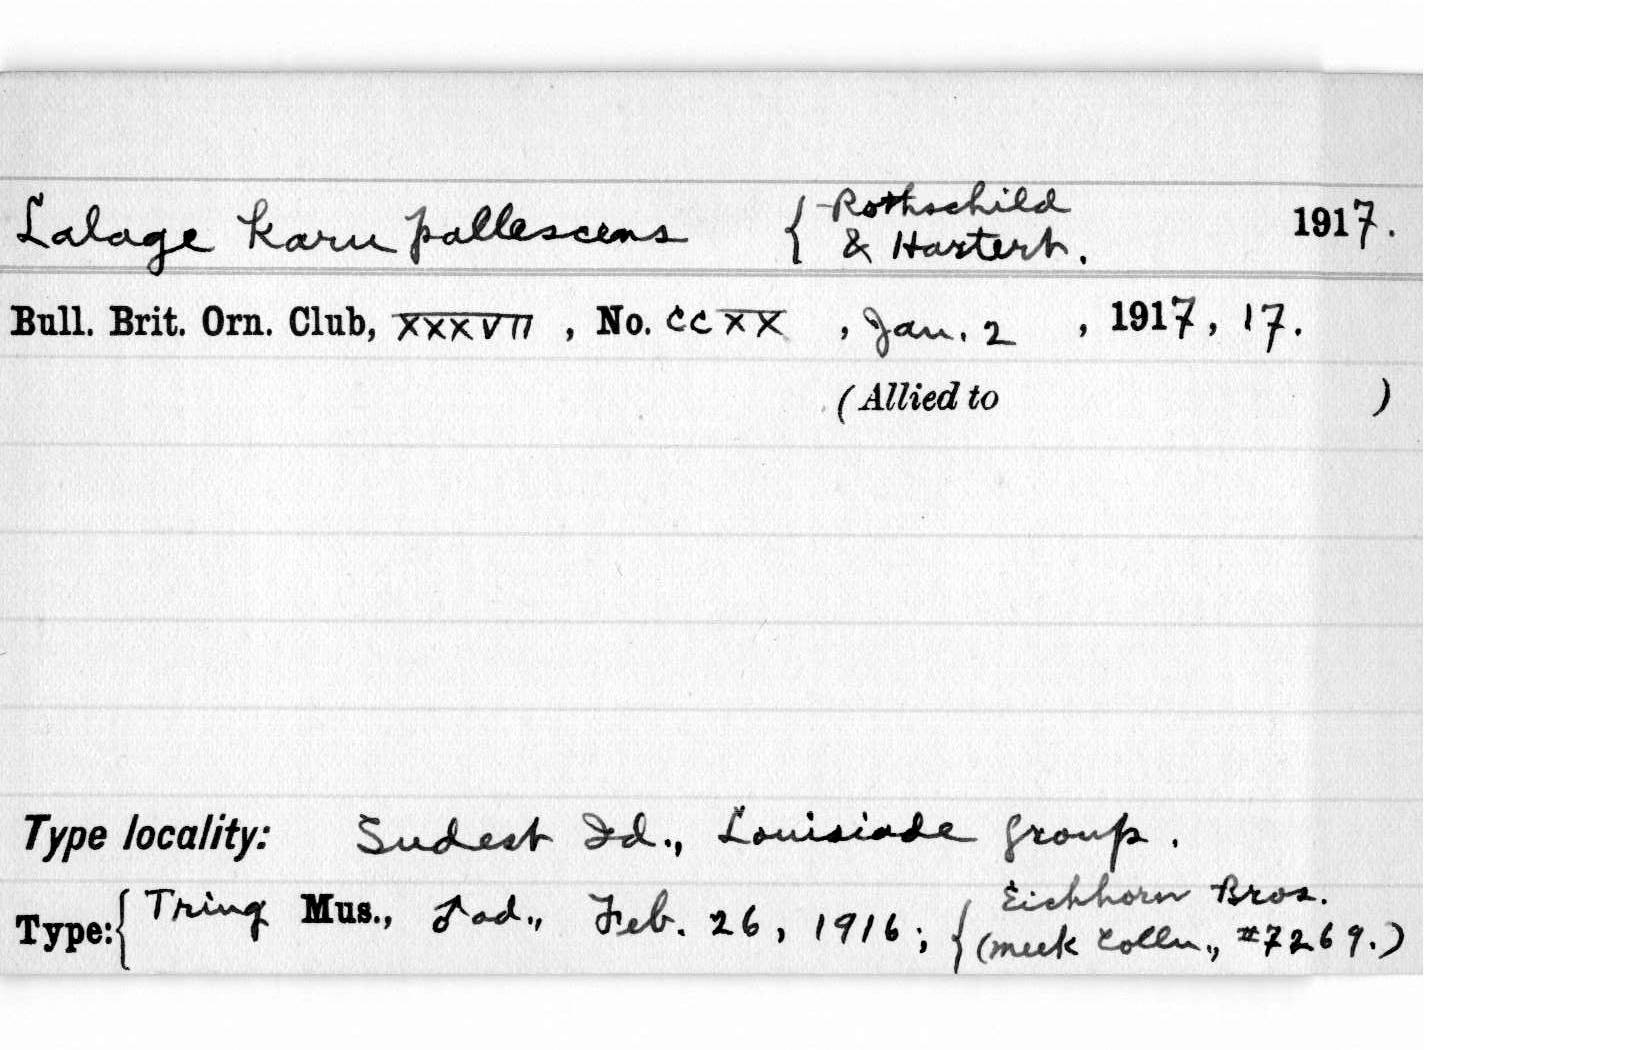 Lalage karu pallescens { Rothschild & Hartert. 1917.
Bull. Brit. Orn. Club, XXXVII, No. CCXX, Jan. 2, 1917, 17.
(Allied to )
Type locality: Sudest Id., Louisiade Group.
Type: { Tring Mus., ♂ ad., Feb. 26, 1916; { Eichhorn Bros. (Meek Colln., #7269.)